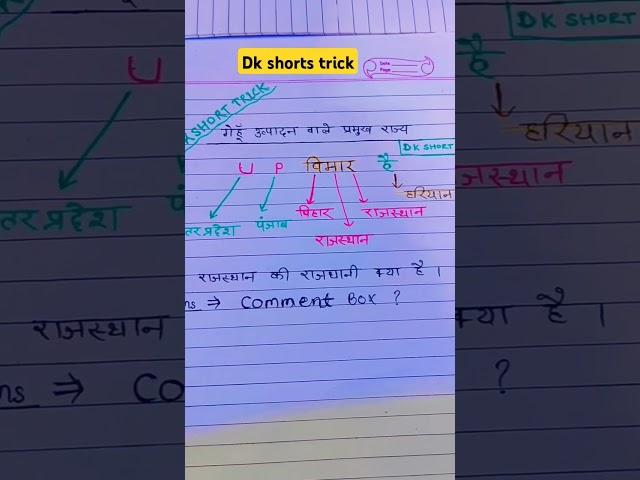 Dk shorts trick
Date
Page
DK SHORT
SHORT TRICK
गेहूँ उत्पादन वाले प्रमुख राज्य
DK SHORT
U P बिमार है
हरियान
बिहार राजस्थान
तर प्रदेश पंजाब
राजस्थान
राजस्थान की राजधानी क्या है।
ns ⇒ Comment Box ?
U
है
हरियान
जस्थान
तर प्रदेश
राजस्थान
क्या है।
ns ⇒ CO
?